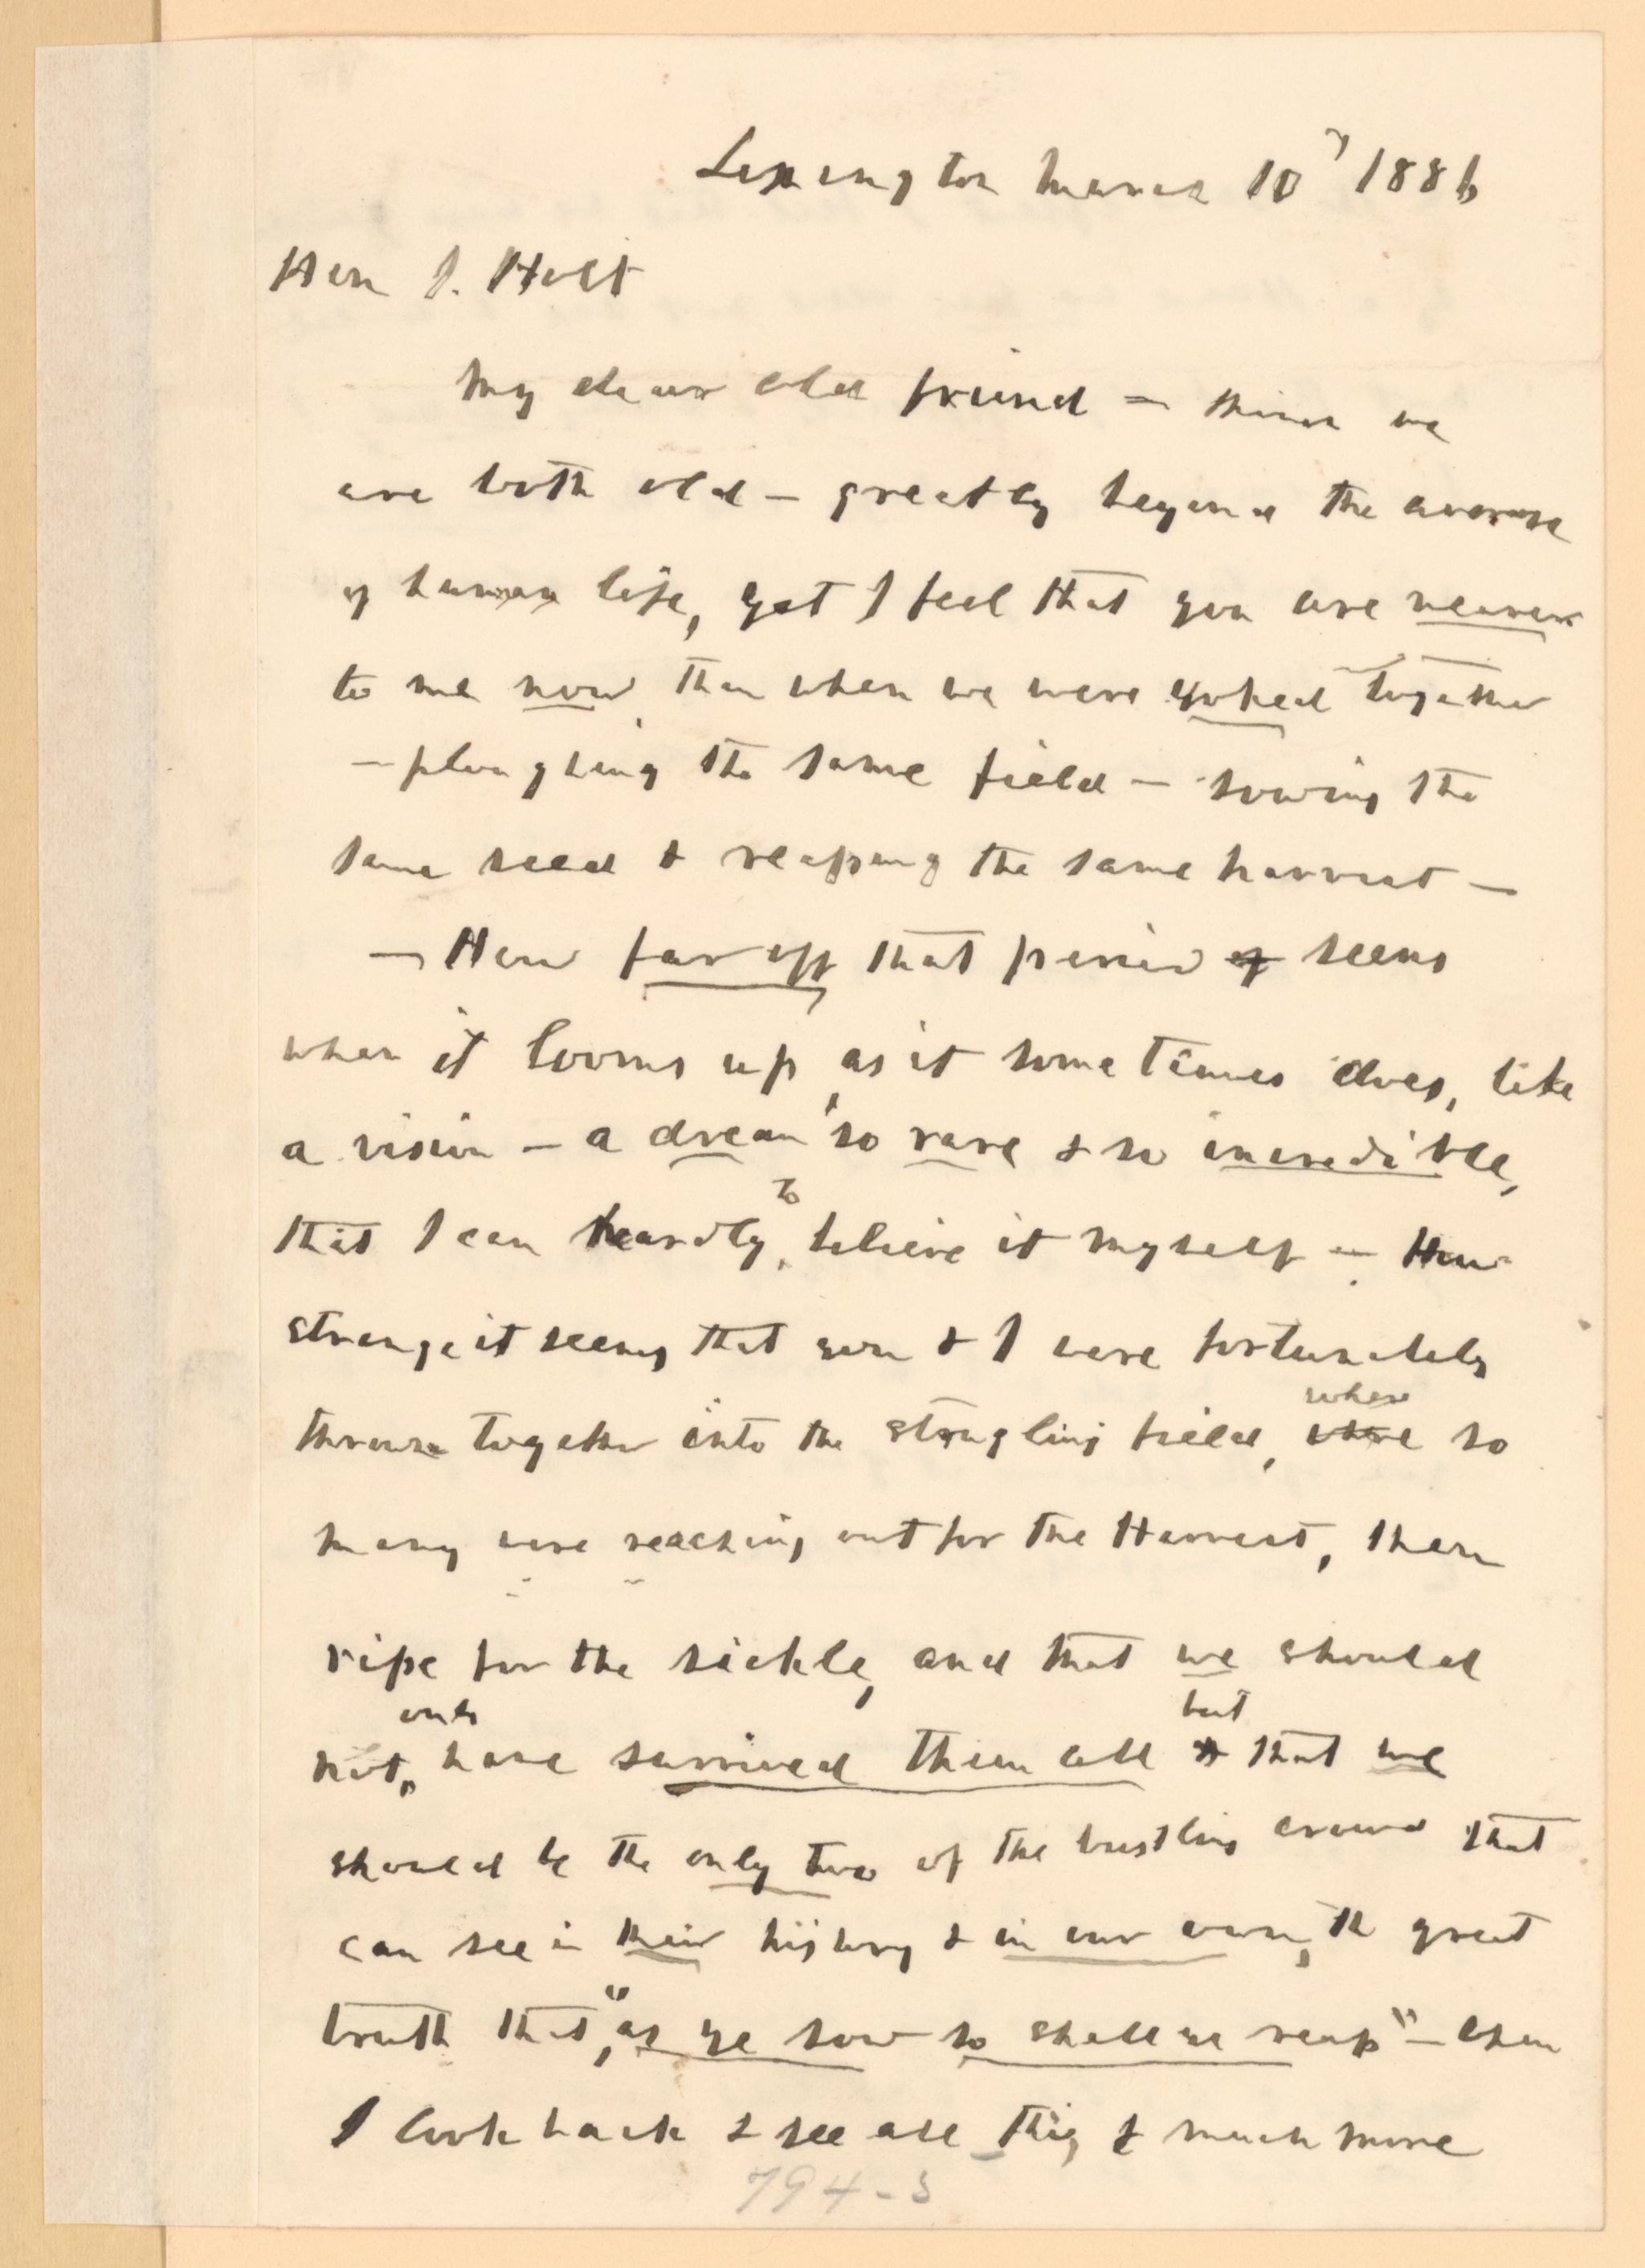 Lexington March 10 1886
Hon J. Holt
My dear old friend — think we
are both old — greatly beyond the average
of human life, yet I feel that you are nearer
to me now, than when we were yoked together
— ploughing the same field — sowing the
same seed & reaping the same harvest —
— How far off that period of seems
when it looms up, as it sometimes does, like
a vision — a dream so rare & so incredible,
to
that I can heardly, believe it myself — How
strange it seems that you & I were fortunately
thrown together into the strugling field,
where
were so
many were reaching out for the Harvest, then
ripe for the sickle, and that we should
only
not, have survived them all
but
& that we
should be the only two of the bustling crowd that
can see in their history & in our own, the great
truth that, "as ye sow so shall ye reap" — When
I look back & see all this & much more
794-5